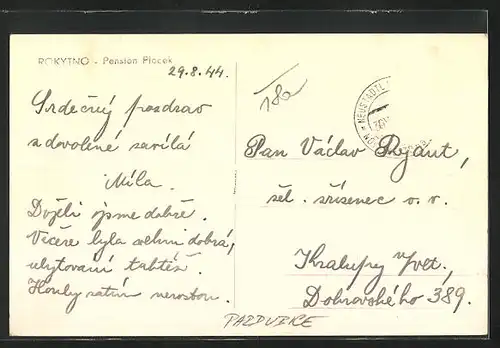 ROKYTNO - Pension Placek
29.8.44.
Srdečný pozdrav
z dovolené zasílá
Míla.
Dojeli jsme dobře.
Večeře byla velmi dobrá,
ubytování taktéž.
Houby zatím nerostou.
Pan Václav Rejant,
žel. zřízenec v. v.
Kralupy n/Vlt.
Dobrovského 389.
NEUSTADTL
PARDUBICE